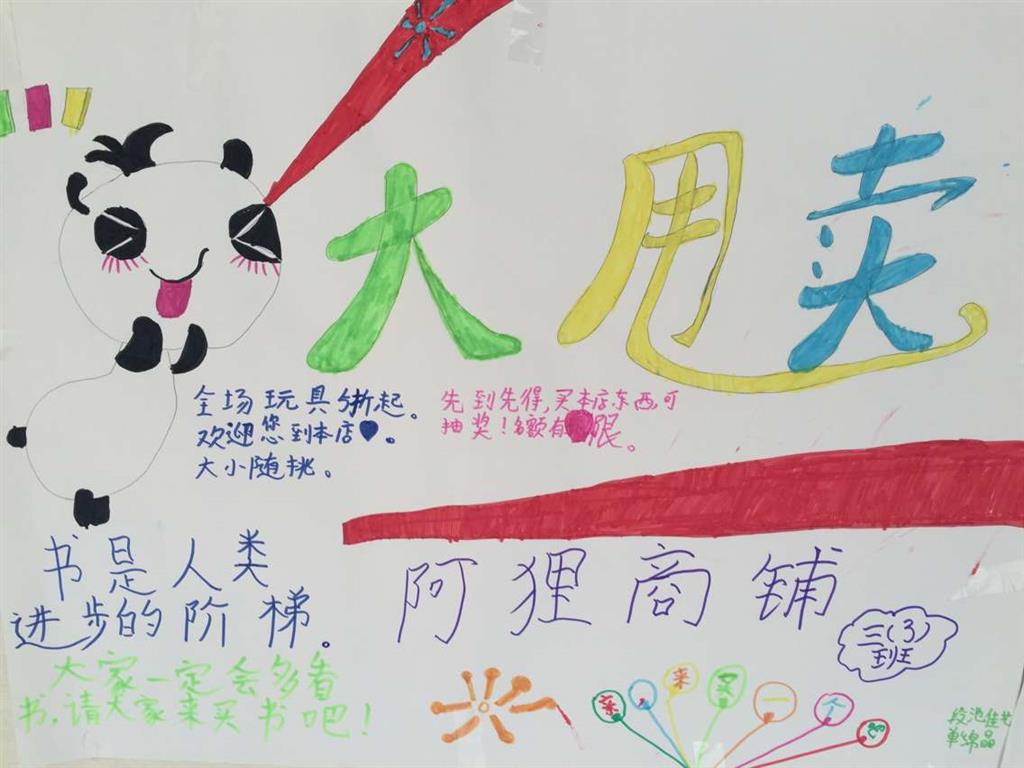 大甩卖
全场玩具5折起。
欢迎您到本店。
大小随挑。
先到先得,买本店东西,可
抽奖!名额有限。
书是人类
进步的阶梯。
大家一定会多看
书,请大家来买书吧!
阿狸商铺
三(3)
班
亲,来买一个吧